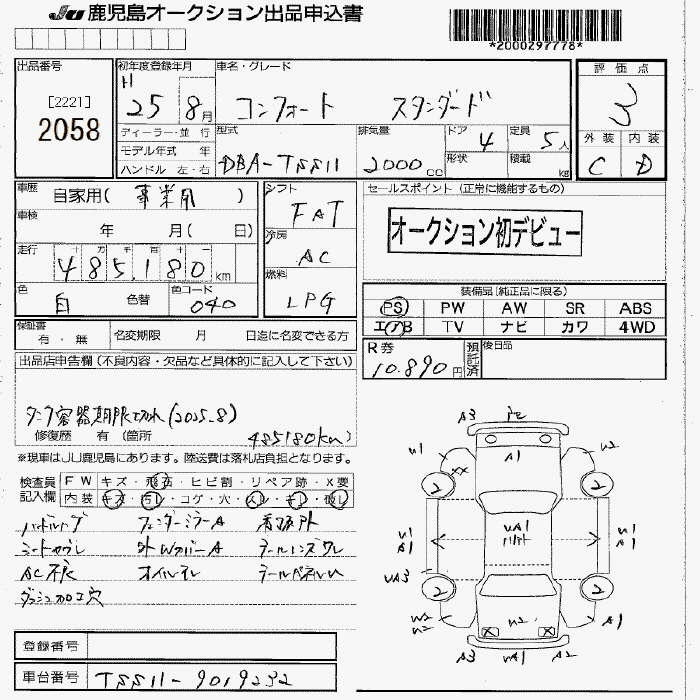 JU 鹿児島オークション出品申込書
*2000297778*
出品番号
[2221]
2058
初年度登録年月
H 25 8月
車名・グレード
コンフォート スタンダード
評価点
3
外装 内装
C D
ディーラー・並 行
モデル年式 年
ハンドル 左・右
型式
DBA-TSS11
排気量
2000 cc
ドア 4
形状
定員 5人
積載 kg
車歴
自家用(事業用)
車検
年 月( 日)
走行
十万千百十一
485,180 km
色
白
色替
色コード
040
シフト
FAT
冷房
AC
燃料
LPG
セールスポイント (正常に機能するもの)
オークション初デビュー
装備品(純正品に限る)
PS PW AW SR ABS
エアB TV ナビ カワ 4WD
保証書
有・無
名変期限 月 日迄に名変できる方
R券
10,890円
預託済
後日品
出品店申告欄(不良内容・欠品など具体的に記入して下さい)
タンク容器期限切れ(2025_8)
修復歴 有(箇所
485180km)
※現車はJU鹿児島にあります。陸送費は落札店負担となります。
検査員記入欄
FW キズ・飛石・ヒビ割・リペア跡・X要
内装 キズ・汚レ・コゲ・穴・ムレ・キレ・破レ
フェンダーミラーA
シートカブレ 外WカバーA テールレンズワレ
AC不良 オイルモレ
ダッシュ加工穴
A3
U1
A1
U2
XX
2
2
U1
A1
UA1
U1
A1
UA3
2
2
W2
U2
U2
A1
A3
UA1
A2
登録番号
車台番号
TSS11-9019232